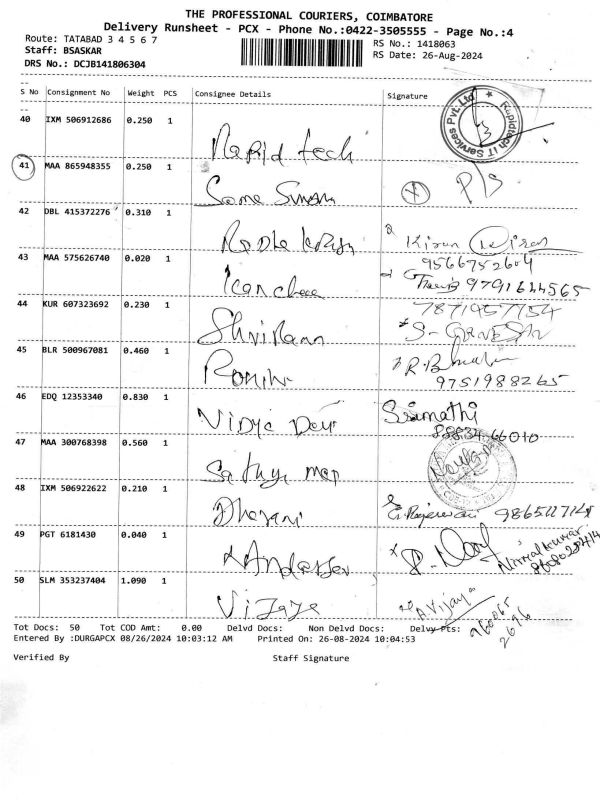 THE PROFESSIONAL COURIERS, COIMBATORE
Delivery Runsheet - PCX - Phone No.:0422-3505555 - Page No.:4
Route: TATABAD 3 4 5 6 7
RS No.: 1418063
Staff: BSASKAR
RS Date: 26-Aug-2024
DRS No.: DCJB141806304
S No Consignment No Weight PCS Consignee Details Signature
40 IXM 506912686 0.250 1 Rapid tech
Rapidtech IT Services Pvt. Ltd.
41 MAA 865948355 0.250 1
42 DBL 415372276 0.310 1
Kiran
43 MAA 575626740 0.020 1 Kanchee
9566752604
9791644565
44 KUR 607323692 0.230 1 Shri Ram
7871957754
S- GANESAN
45 BLR 500967081 0.460 1
9751988265
46 EDQ 12353340 0.830 1 Vidya Devi
Srimathi
47 MAA 300768398 0.560 1
48 IXM 506922622 0.210 1 Dharani
49 PGT 6181430 0.040 1
Nirmalkumar
50 SLM 353237404 1.090 1 Vijaya
A Vijaya
960065
2696
Tot Docs: 50 Tot COD Amt: 0.00 Delvd Docs: Non Delvd Docs: Delvy Pts:
Entered By :DURGAPCX 08/26/2024 10:03:12 AM Printed On: 26-08-2024 10:04:53
Verified By Staff Signature